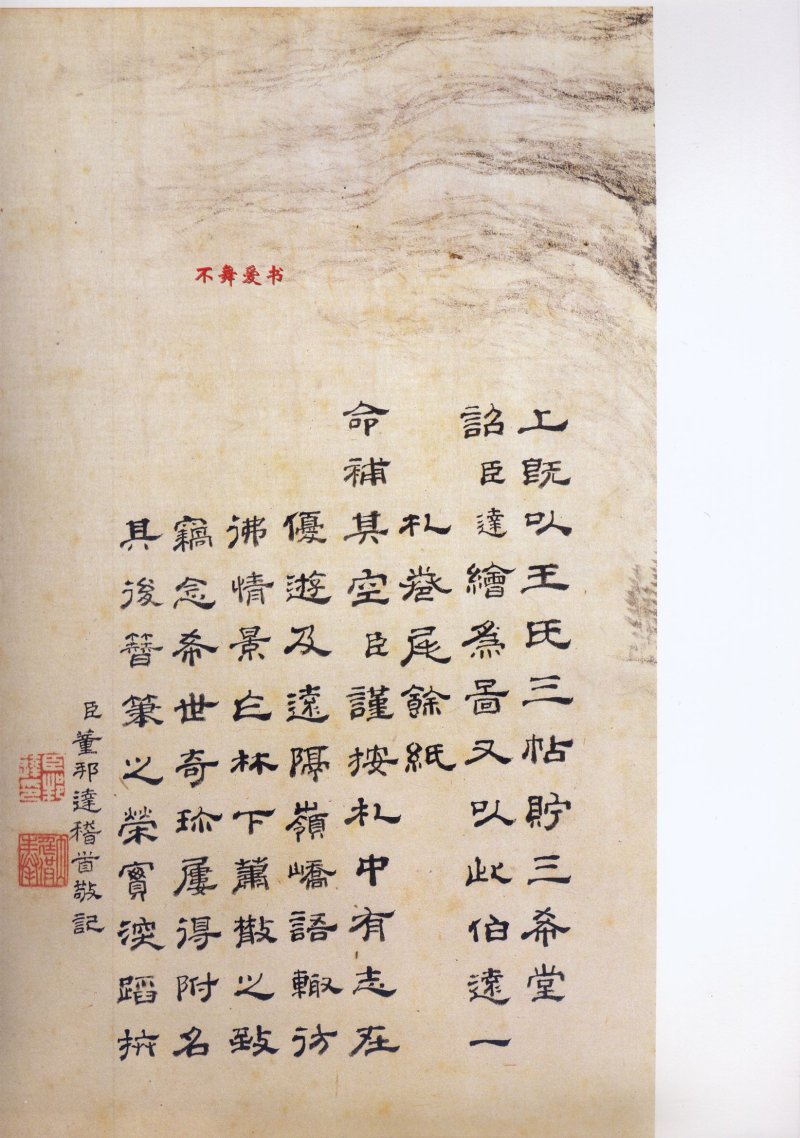 上既以王氏三帖貯三希堂
詔臣達繪為啚又以此伯遠一
札卷尾餘紙
命補其空臣謹按札中有志在
優遊及遠隔嶺嶠語輒彷
彿情景亡林下蕭散之致
竊念希世奇珎屢得附名
其後簪筆之榮實深蹈抃
臣董邦達稽首敬記
不舞爱书